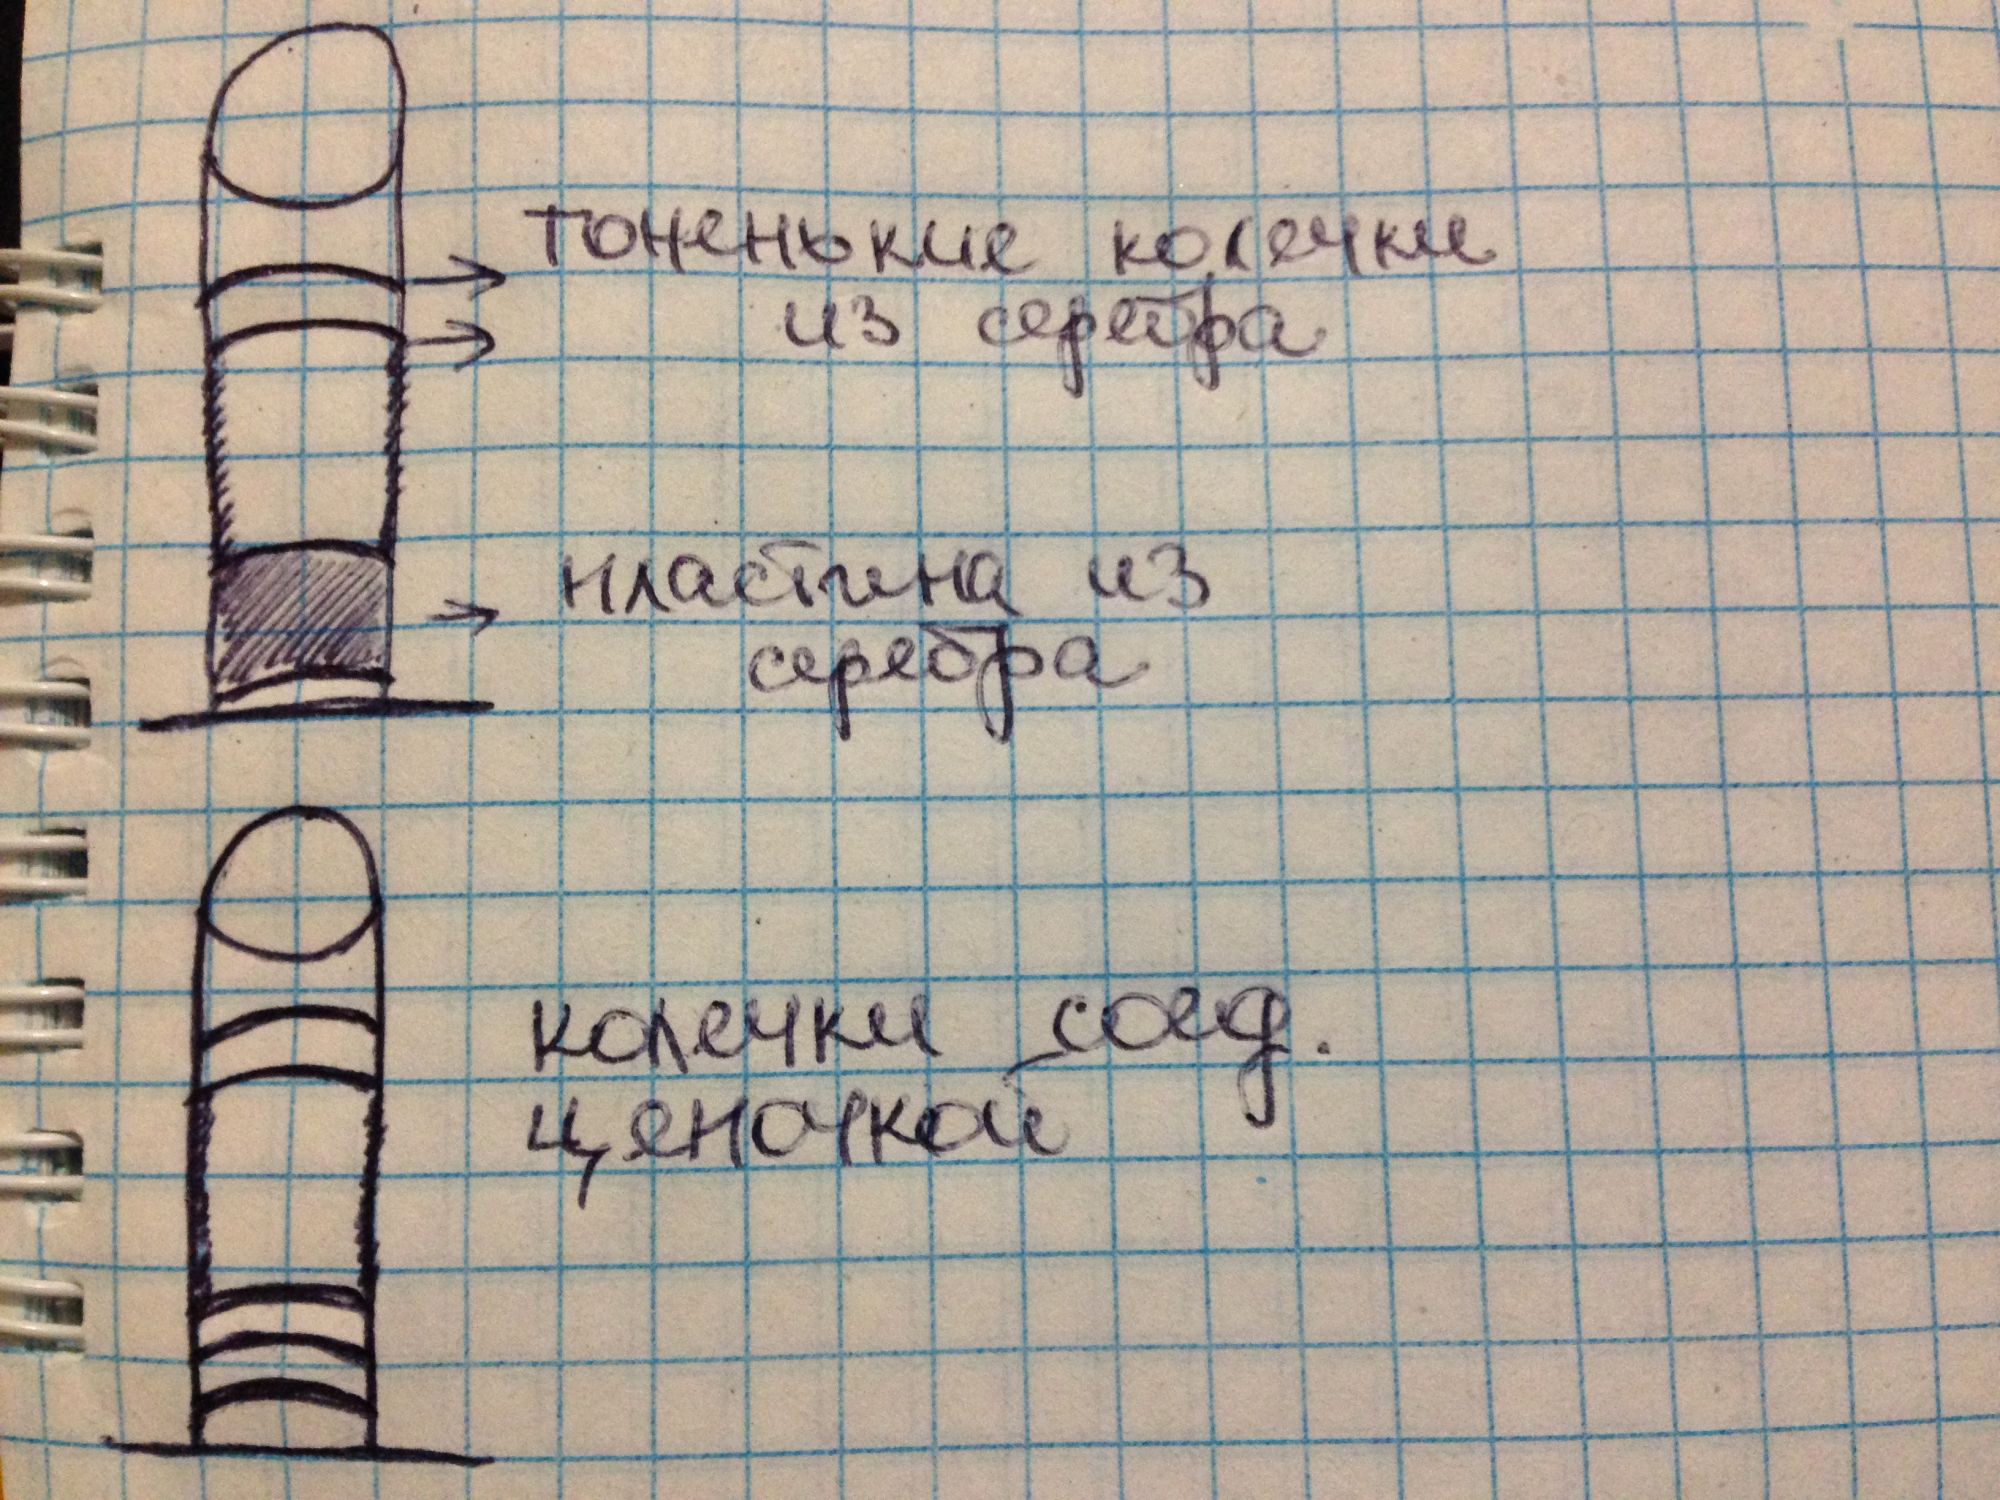 тоненькие колечки
из серебра
пластина из
серебра
колечки соед.
цепочкой